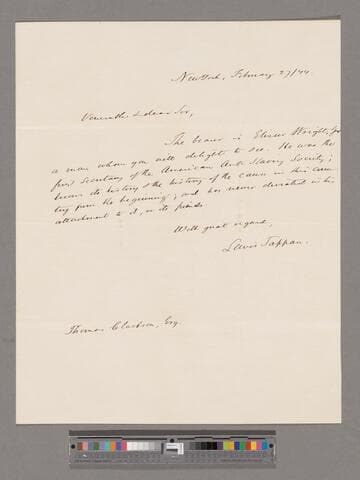 New York, February 27/44
Venerable & dear Sir,
The bearer is Elizur Wright, Jr.
a man whom you will delight to see. He was the
first Secretary of the American Anti Slavery Society;
knows its history & the history of the cause in this coun
try from the beginning; and has never deviated in his
attachment to it, or its friends.
With great regard,
Lewis Tappan.
Thomas Clarkson, Esq.